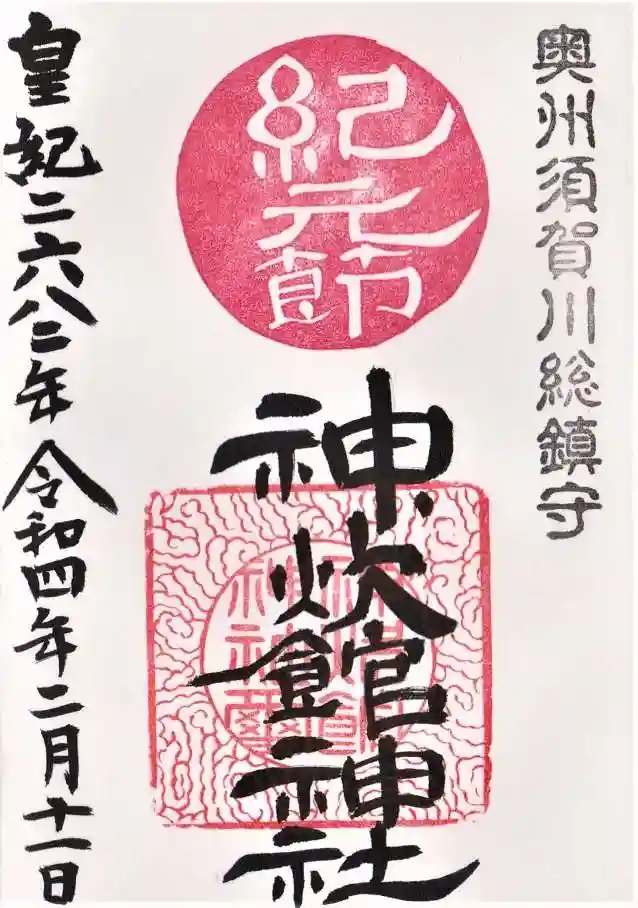 奥州須賀川総鎮守
紀元節
神炊館神社
皇紀二六八二年 令和四年二月十一日